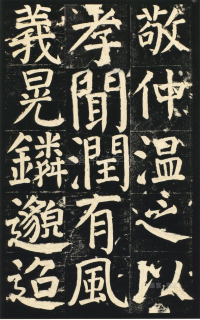 敬仲温之以
孝聞潤有風
義晃鏻邈迢